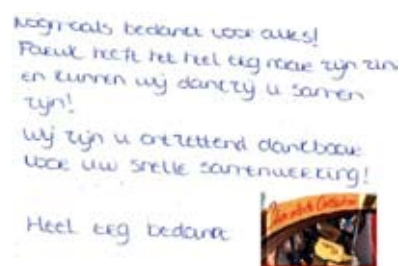 Nogmaals bedankt voor alles!
Faruk heeft het heel erg naar zijn zin
en kunnen wij dankzij u samen
zijn!
Wij zijn u ontzettend dankbaar
voor uw snelle samenwerking!
Heel erg bedankt